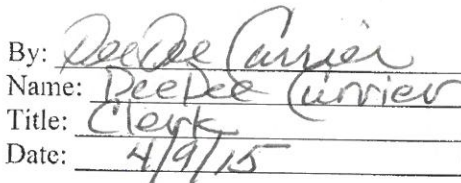 By: DeeDee Currier
Name: DeeDee Currier
Title: Clerk
Date: 4/9/15